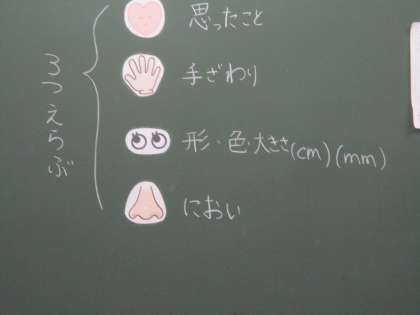 3つえらぶ
思ったこと
手ざわり
形・色・大きさ(cm)(mm)
におい